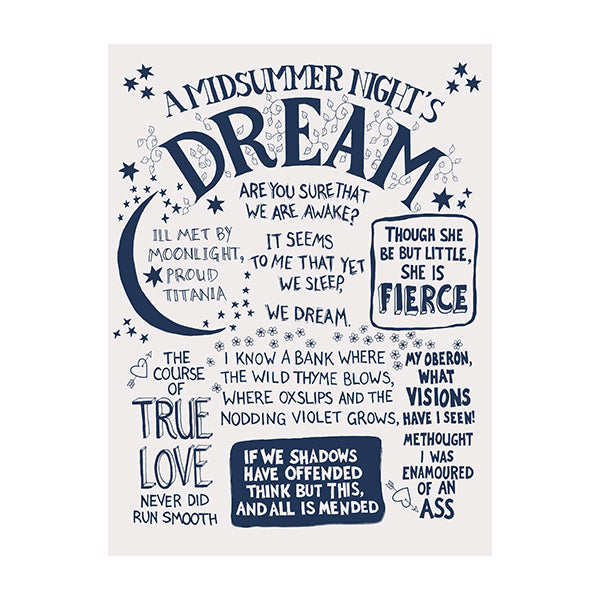 A MIDSUMMER NIGHT'S
DREAM
ARE YOU SURE THAT
WE ARE AWAKE?
IT SEEMS
TO ME THAT YET
WE SLEEP,
WE DREAM.
ILL MET BY
MOONLIGHT,
PROUD
TITANIA
THOUGH SHE
BE BUT LITTLE,
SHE IS
FIERCE
THE
COURSE
OF
TRUE
LOVE
NEVER DID
RUN SMOOTH
I KNOW A BANK WHERE
THE WILD THYME BLOWS,
WHERE OXSLIPS AND THE
NODDING VIOLET GROWS,
MY OBERON,
WHAT
VISIONS
HAVE I SEEN!
METHOUGHT
I WAS
ENAMOURED
OF AN
ASS
IF WE SHADOWS
HAVE OFFENDED
THINK BUT THIS,
AND ALL IS MENDED